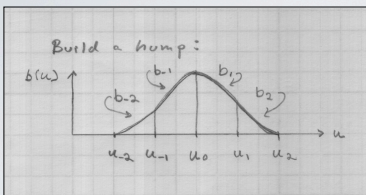 Build a hump:
b(u)
b-2
b-1
b1
b2
u
u-2
u-1
u0
u1
u2